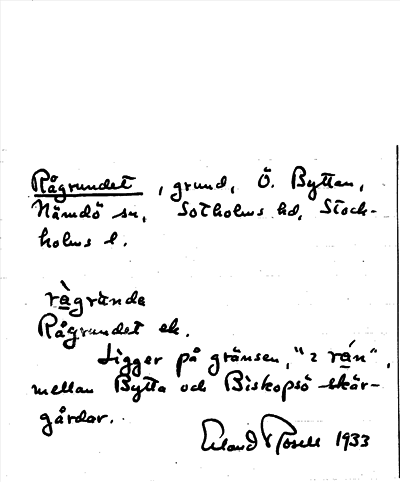 Rågrundet, grund, Ö. Byttan,
Nämdö sn, Sotholms hd, Stock-
holms l.
rågrùndə
Rågrundet ek.
Ligger på gränsen, "i rån",
mellan Bytta och Biskopsö skär-
gårdar.
Erland Rosell 1933